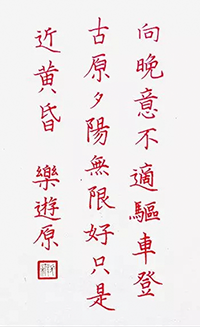 向晚意不適驅車登
古原夕陽無限好只是
近黃昏 樂遊原